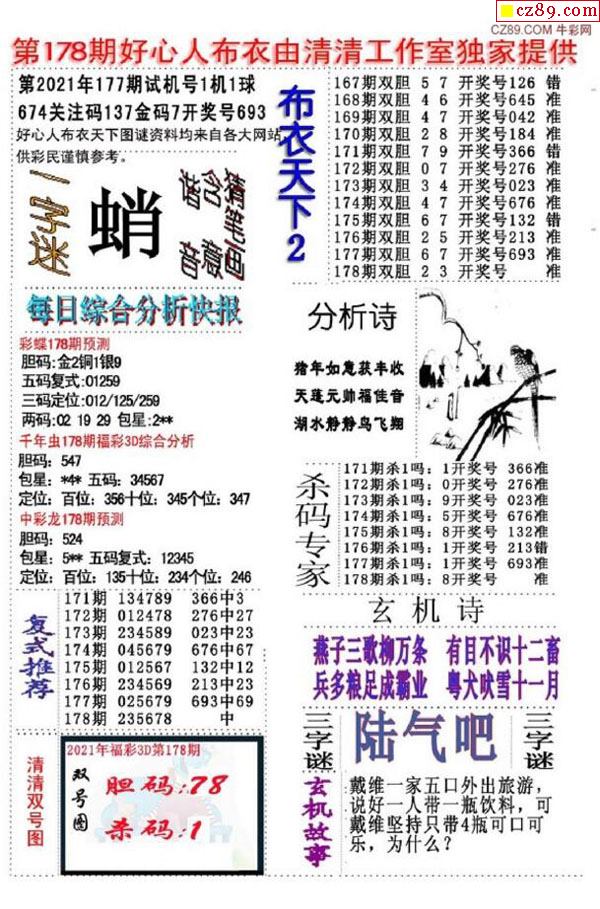 cz89.com
CZ89.COM 牛彩网
第178期好心人布衣由清清工作室独家提供
第2021年177期试机号1机1球
674关注码137金码7开奖号693
好心人布衣天下图谜资料均来自各大网站
供彩民谨慎参考。
一字谜
蛸
谐音
含意
猜笔画
布衣天下2
167期双胆 5 7 开奖号126 错
168期双胆 4 6 开奖号645 准
169期双胆 4 7 开奖号042 准
170期双胆 2 8 开奖号184 准
171期双胆 7 9 开奖号366 错
172期双胆 0 7 开奖号276 准
173期双胆 3 4 开奖号023 准
174期双胆 4 7 开奖号676 准
175期双胆 6 7 开奖号132 错
176期双胆 2 5 开奖号213 准
177期双胆 6 7 开奖号693 准
178期双胆 2 3 开奖号 准
每日综合分析快报
彩蝶178期预测
胆码:金2铜1银9
五码复式:01259
三码定位:012/125/259
两码:02 19 29 包星:2**
千年虫178期福彩3D综合分析
胆码：547
包星：*4* 五码：34567
定位：百位：356十位：345个位：347
中彩龙178期预测
胆码：524
包星：5** 五码复式：12345
定位：百位：135十位：234个位：246
分析诗
猪年如意获丰收
天蓬元帅福佳音
湖水静静鸟飞翔
杀码专家
171期杀1吗：1开奖号 366准
172期杀1吗：0开奖号 276准
173期杀1吗：9开奖号 023准
174期杀1吗：5开奖号 676准
175期杀1吗：8开奖号 132准
176期杀1吗：1开奖号 213错
177期杀1吗：1开奖号 693准
178期杀1吗：8开奖号 准
复式推荐
171期 134789 366中3
172期 012478 276中27
173期 234589 023中23
174期 045679 676中67
175期 012567 132中12
176期 234569 213中23
177期 025679 693中69
178期 235678 中
玄机诗
燕子三歌柳万条 有目不识十二畜
兵多粮足成霸业 粤犬吠雪十一月
三字谜
陆气吧
三字谜
清清双号图
2021年福彩3D第178期
双号图
胆码:78
杀码:1
玄机故事
戴维一家五口外出旅游，
说好一人带一瓶饮料，可
戴维坚持只带4瓶可口可
乐，为什么？